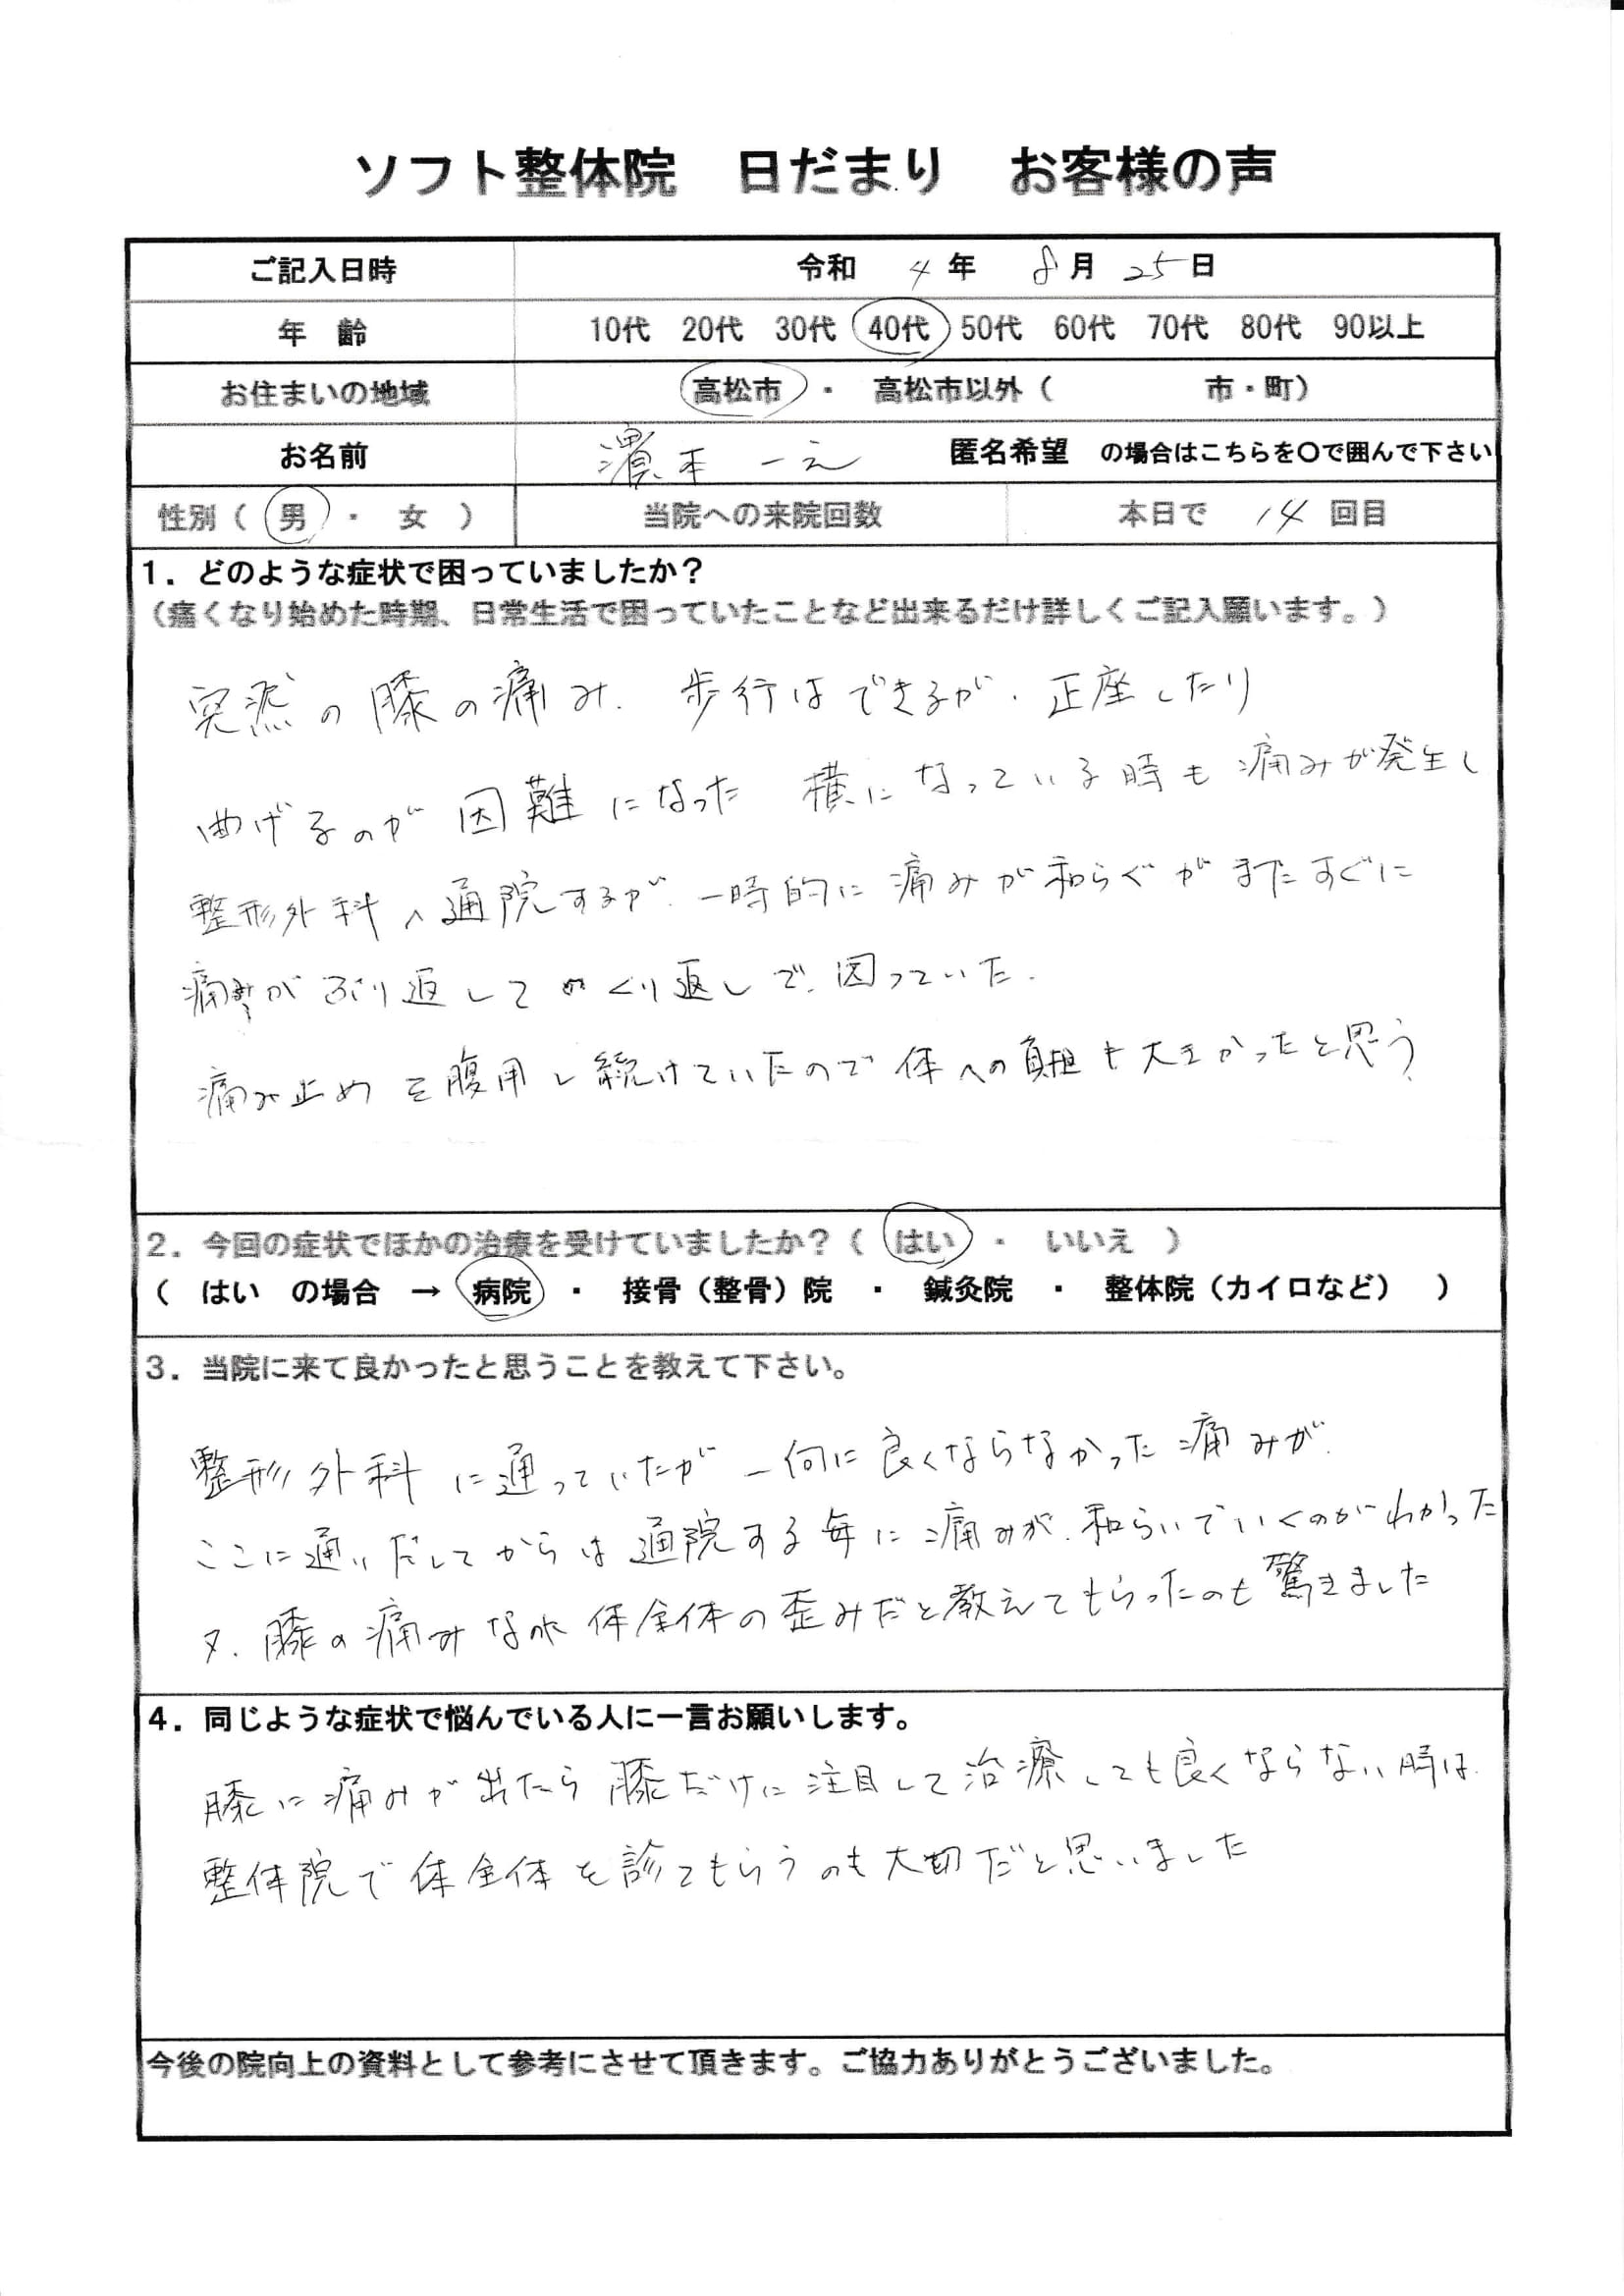 ソフト整体院　日だまり　お客様の声
ご記入日時　令和　4年　8月　25日
年　齢　10代　20代　30代　40代　50代　60代　70代　80代　90以上
お住まいの地域　高松市　・　高松市以外（　　　　　市・町）
お名前　濱本　一之　匿名希望　の場合はこちらを〇で囲んで下さい
性別（　男　・　女　）　当院への来院回数　本日で　14　回目
1．どのような症状で困っていましたか？
（痛くなり始めた時期、日常生活で困っていたことなど出来るだけ詳しくご記入願います。）
突然の膝の痛み．歩行はできるが．正座したり
曲げるのが困難になった　横になっている時も痛みが発生し
整形外科へ通院するが．一時的に痛みが和らぐがまたすぐに
痛みがぶり返して　くり返しで．困っていた．
痛み止めを腹用し続けていたので体への負担も大きかったと思う．
2．今回の症状でほかの治療を受けていましたか？（　はい　・　いいえ　）
（　はい　の場合　→　病院　・　接骨（整骨）院　・　鍼灸院　・　整体院（カイロなど）　）
3．当院に来て良かったと思うことを教えて下さい。
整形外科に通っていたが一向に良くならなかった痛みが．
ここに通いだしてからは通院する毎に痛みが．和らいでいくのがわかった
又．膝の痛み　体全体の歪みだと教えてもらったのも驚きました
4．同じような症状で悩んでいる人に一言お願いします。
膝に痛みが出たら膝だけに注目して治療しても良くならない時は．
整体院で体全体を診てもらうのも大切だと思いました
今後の院向上の資料として参考にさせて頂きます。ご協力ありがとうございました。